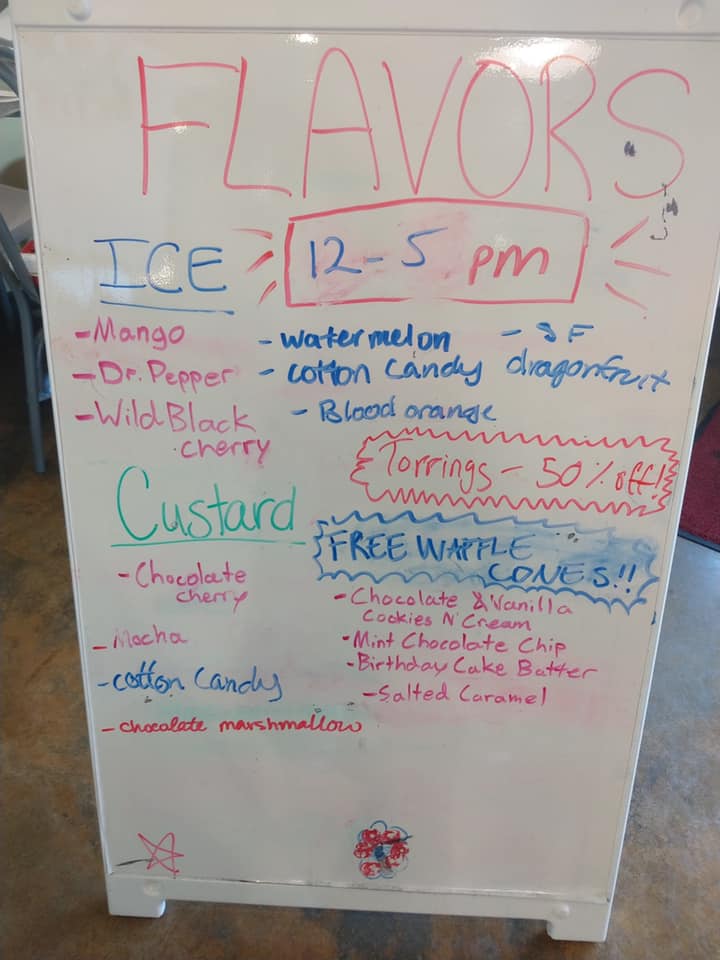 FLAVORS
ICE
12-5 pm
- Mango
- Dr. Pepper
- Wild Black
cherry
- watermelon
- cotton Candy
- Blood orange
- SF
dragonfruit
Torrings - 50% off!
Custard
FREE WAFFLE
CONES!!
- Chocolate
cherry
- Mocha
- cotton Candy
- chocolate marshmallow
- Chocolate & Vanilla
Cookies N' Cream
- Mint Chocolate Chip
- Birthday Cake Batter
- Salted Caramel